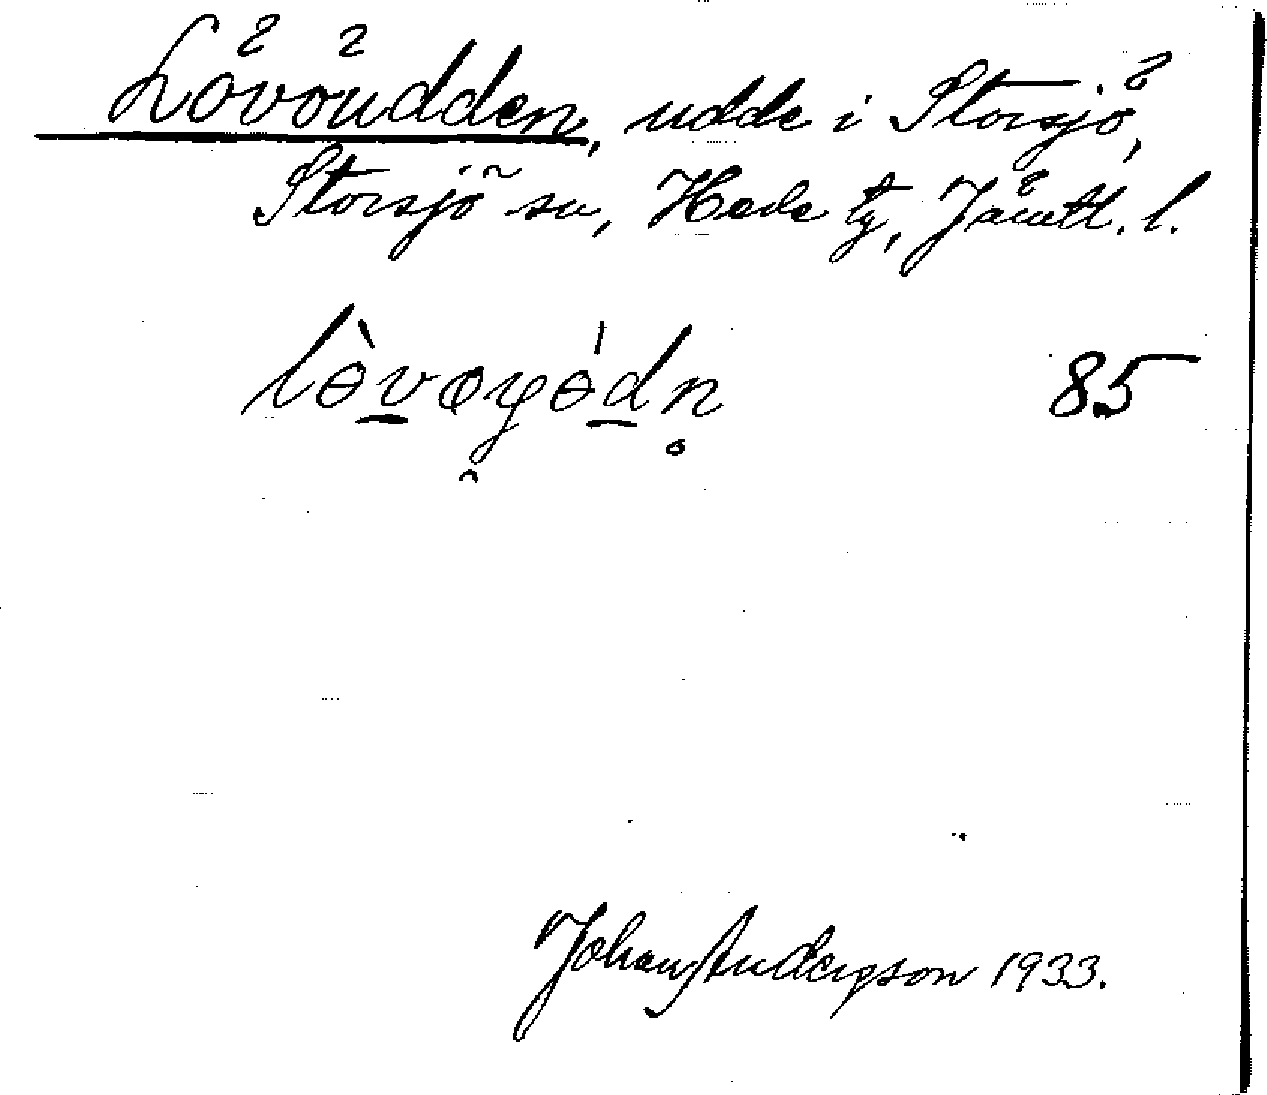 Lövöudden, udde i Storsjö,
Storsjö sn, Hede tg, Jämtl. l.
lòvøyódn̥ 85
Johan Anderson 1933.